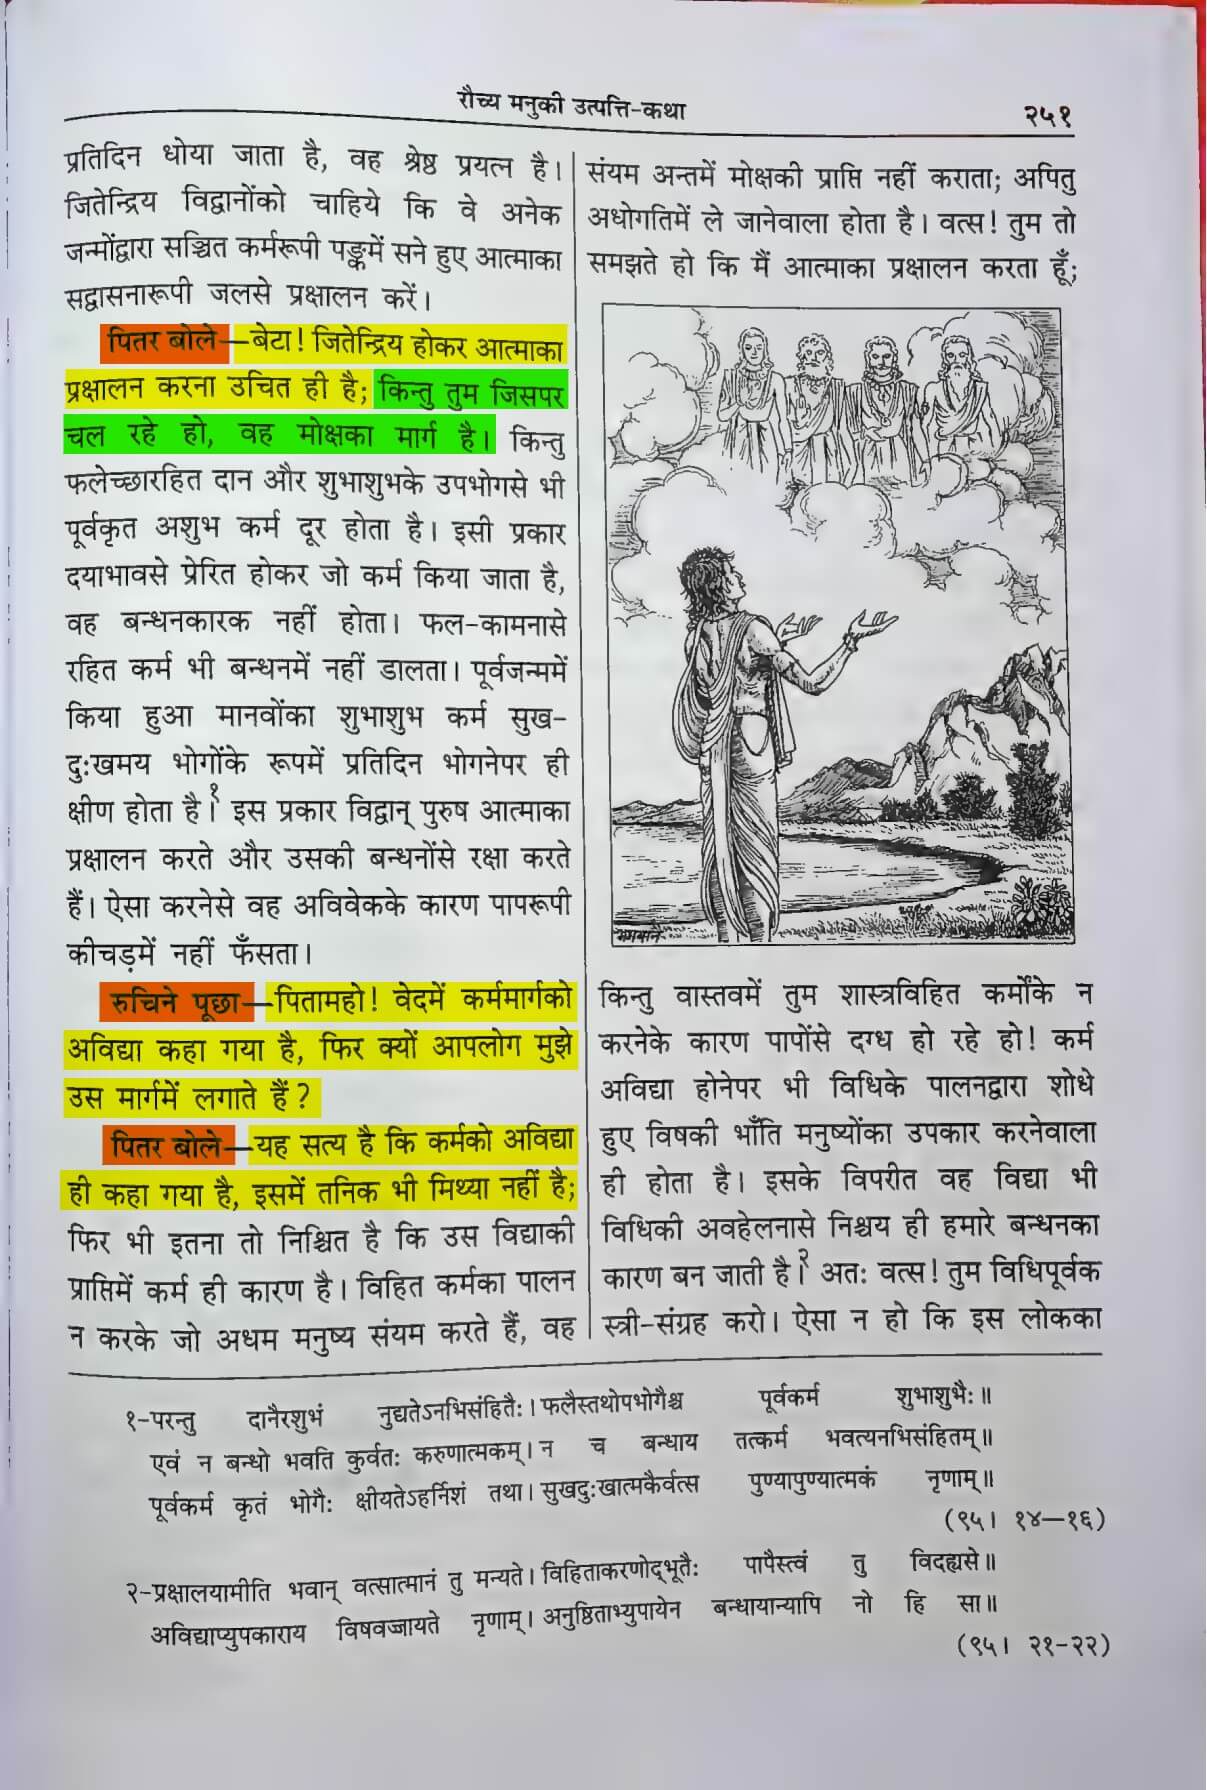 रौच्य मनुकी उत्पत्ति-कथा
२५१
प्रतिदिन धोया जाता है, वह श्रेष्ठ प्रयत्न है।
जितेन्द्रिय विद्वानोंको चाहिये कि वे अनेक
जन्मोंद्वारा सञ्चित कर्मरूपी पङ्कमें सने हुए आत्माका
सद्वासनारूपी जलसे प्रक्षालन करें।
पितर बोले—बेटा! जितेन्द्रिय होकर आत्माका
प्रक्षालन करना उचित ही है; किन्तु तुम जिसपर
चल रहे हो, वह मोक्षका मार्ग है। किन्तु
फलेच्छारहित दान और शुभाशुभके उपभोगसे भी
पूर्वकृत अशुभ कर्म दूर होता है। इसी प्रकार
दयाभावसे प्रेरित होकर जो कर्म किया जाता है,
वह बन्धनकारक नहीं होता। फल-कामनासे
रहित कर्म भी बन्धनमें नहीं डालता। पूर्वजन्ममें
किया हुआ मानवोंका शुभाशुभ कर्म सुख-
दुःखमय भोगोंके रूपमें प्रतिदिन भोगनेपर ही
क्षीण होता है।१ इस प्रकार विद्वान् पुरुष आत्माका
प्रक्षालन करते और उसकी बन्धनोंसे रक्षा करते
हैं। ऐसा करनेसे वह अविवेकके कारण पापरूपी
कीचड़में नहीं फँसता।
रुचिने पूछा—पितामहो! वेदमें कर्ममार्गको
अविद्या कहा गया है, फिर क्यों आपलोग मुझे
उस मार्गमें लगाते हैं?
पितर बोले—यह सत्य है कि कर्मको अविद्या
ही कहा गया है, इसमें तनिक भी मिथ्या नहीं है;
फिर भी इतना तो निश्चित है कि उस विद्याकी
प्राप्तिमें कर्म ही कारण है। विहित कर्मका पालन
न करके जो अधम मनुष्य संयम करते हैं, वह
संयम अन्तमें मोक्षकी प्राप्ति नहीं कराता; अपितु
अधोगतिमें ले जानेवाला होता है। वत्स! तुम तो
समझते हो कि मैं आत्माका प्रक्षालन करता हूँ;
भगवान
किन्तु वास्तवमें तुम शास्त्रविहित कर्मोंके न
करनेके कारण पापोंसे दग्ध हो रहे हो! कर्म
अविद्या होनेपर भी विधिके पालनद्वारा शोधे
हुए विषकी भाँति मनुष्योंका उपकार करनेवाला
ही होता है। इसके विपरीत वह विद्या भी
विधिकी अवहेलनासे निश्चय ही हमारे बन्धनका
कारण बन जाती है।२ अतः वत्स! तुम विधिपूर्वक
स्त्री-संग्रह करो। ऐसा न हो कि इस लोकका
१-परन्तु दानैरशुभं नुद्यतेऽनभिसंहितैः। फलैस्तथोपभोगैश्च पूर्वकर्म शुभाशुभैः॥
एवं न बन्धो भवति कुर्वतः करुणात्मकम्। न च बन्धाय तत्कर्म भवत्यनभिसंहितम्॥
पूर्वकर्म कृतं भोगैः क्षीयतेऽहर्निशं तथा। सुखदुःखात्मकैर्वत्स पुण्यापुण्यात्मकं नृणाम्॥
(९५। १४—१६)
२-प्रक्षालयामीति भवान् वत्सात्मानं तु मन्यते। विहिताकरणोद्भूतैः पापैस्त्वं तु विदह्यसे॥
अविद्याप्युपकाराय विषवज्जायते नृणाम्। अनुष्ठिताभ्युपायेन बन्धायान्यापि नो हि सा॥
(९५। २१-२२)